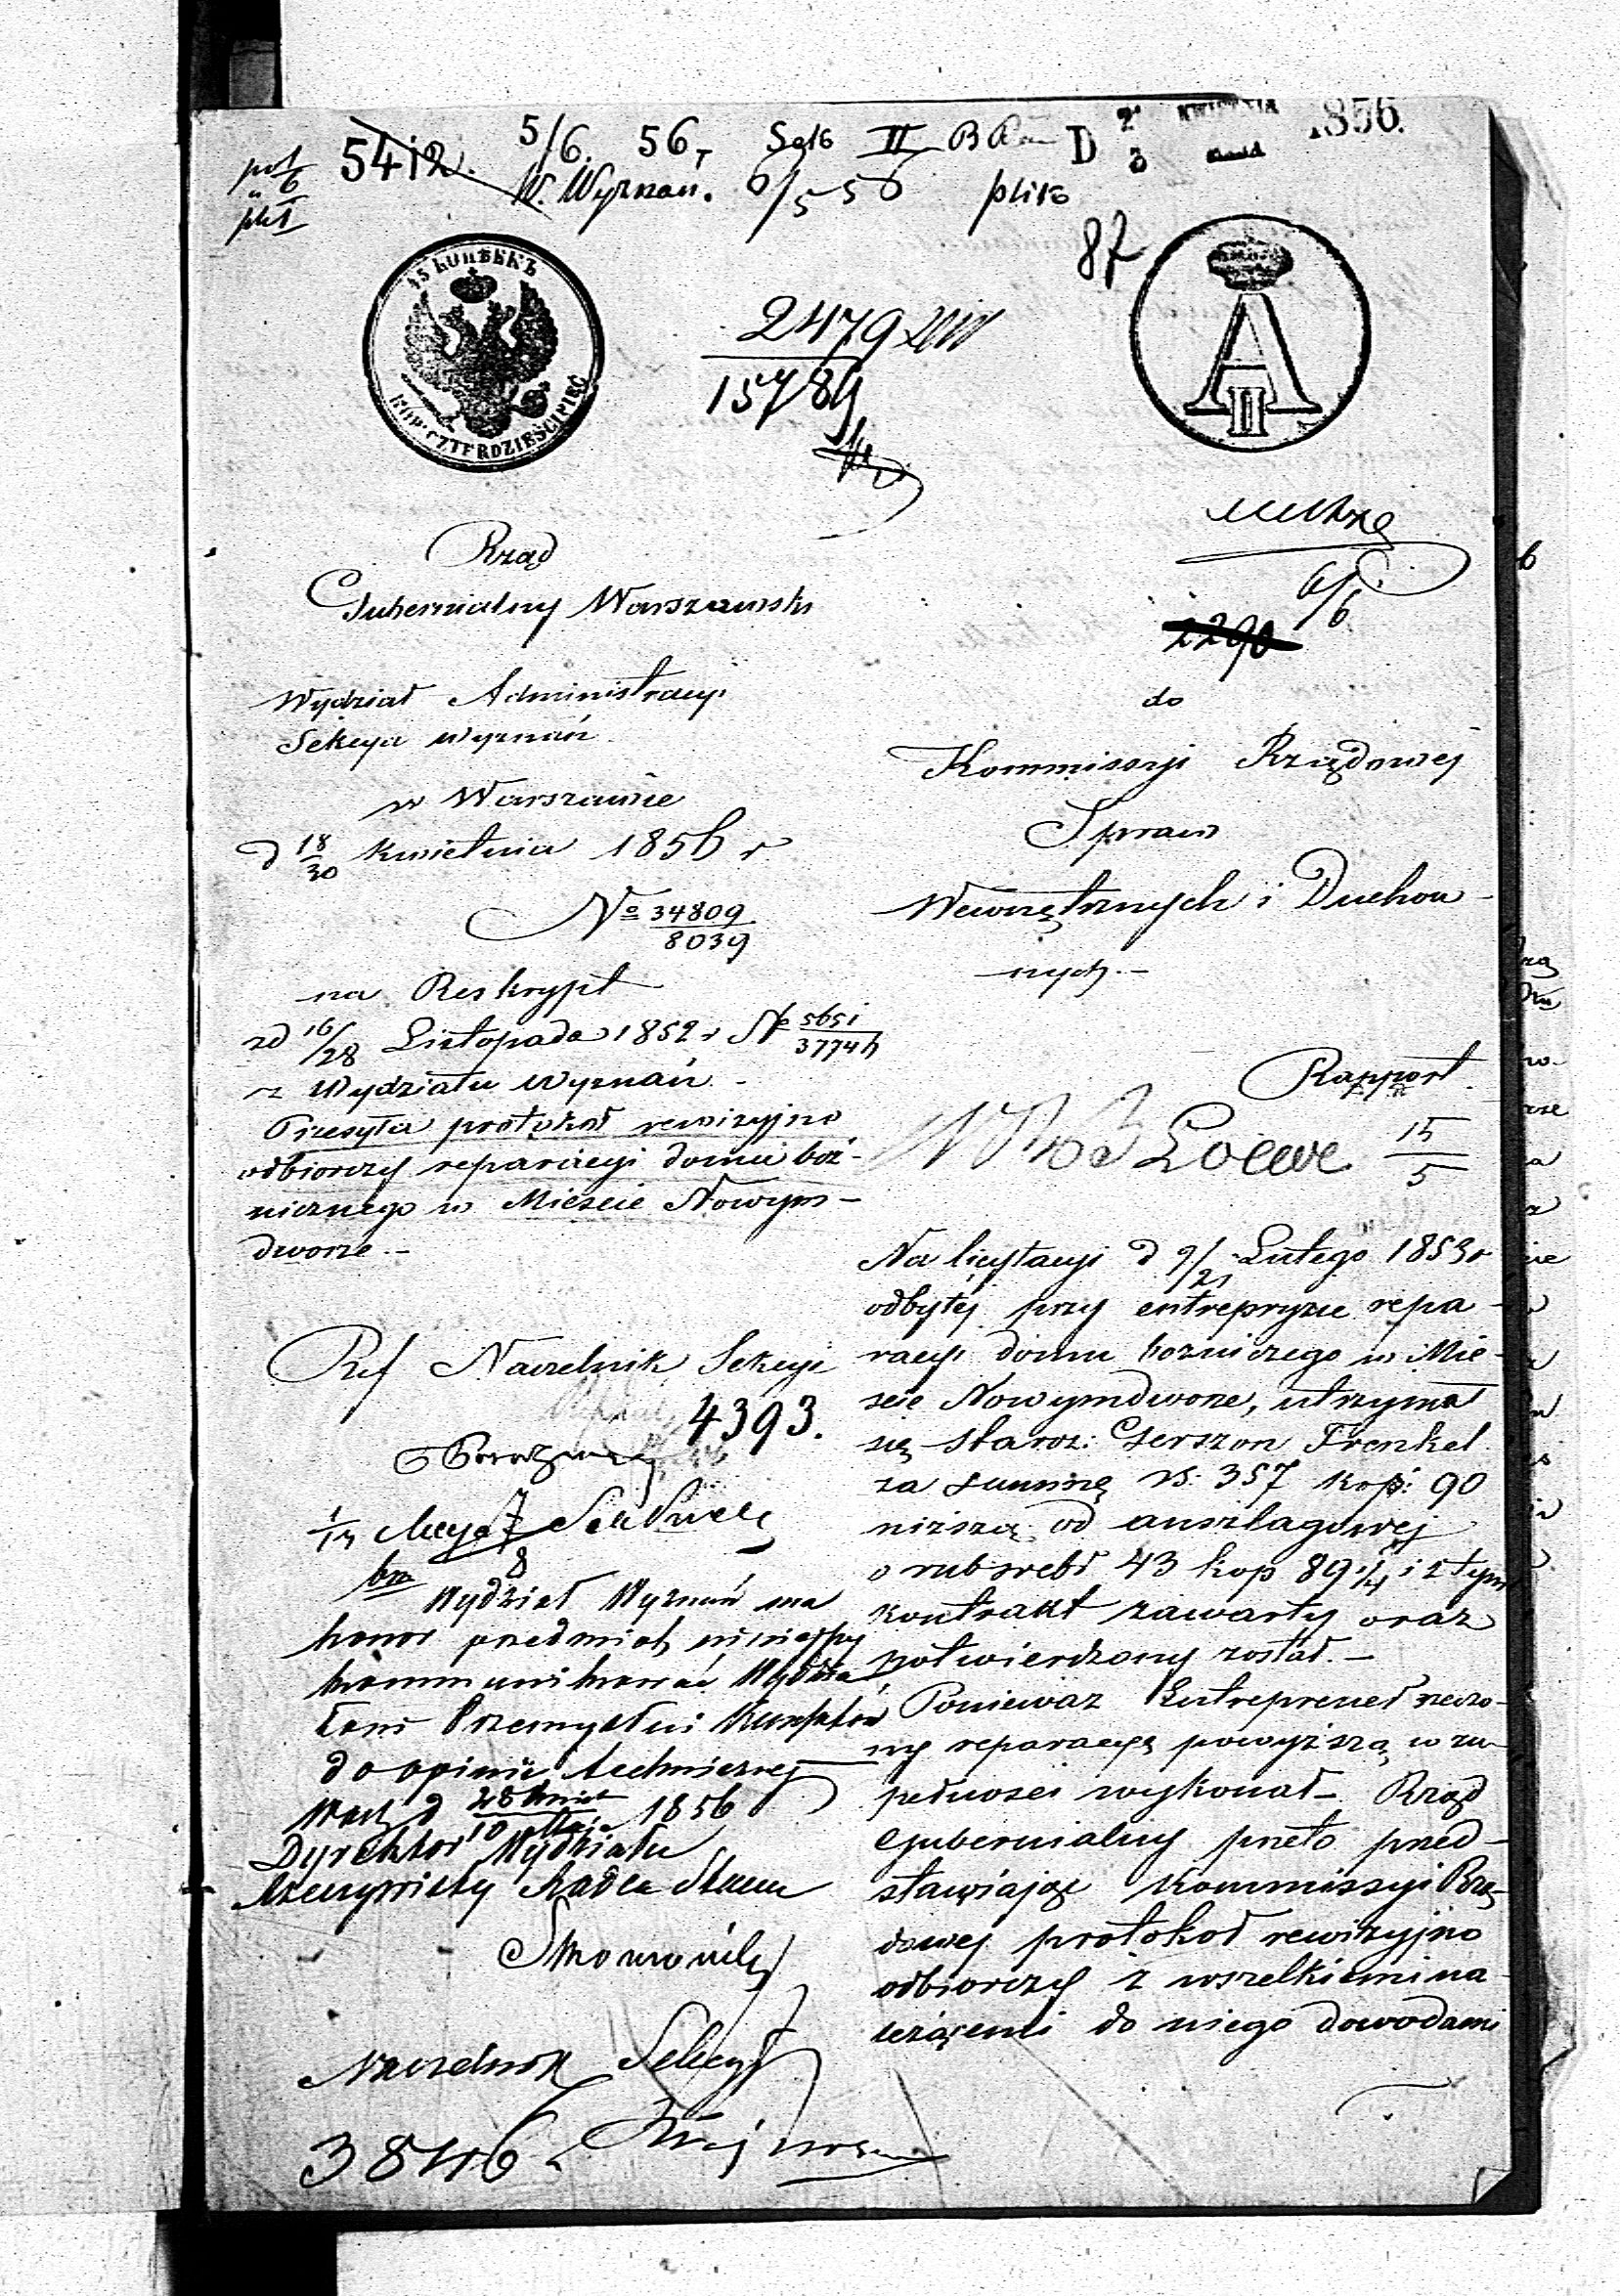 5412.
5/6. 56
II
D
1856.
W. Wyznań.
87
45 KOPѢEKЪ
KOP: CZTERDZIEŚCI PIĘĆ
A II
2479
15789
6/6
2290
Rząd
Gubernialny Warszawski
Wydział Administracyi
Sekcya wyznań
w Warszawie
d 18/30 Kwietnia 1856 r
No 34809/8039
na Reskrypt
z d 16/28 Listopada 1852 r No 5651/37746
z Wydziału Wyznań -
Przesyła protokół rewizyjno
odbiorczy reparacyi domu boż-
nicznego w Mieście Nowym-
dworze.-
Naczelnik Sekcyi
4393.
Wydział Wyznań ma
honor przedmiot niniejszy
kommunikować Wydzia
łowi Przemysłu i Kunsztów
do opinii technicznej
Warsz d 28 Kwiet/10 Maja 1856
Dyrektor Wydziału
Rzeczywisty Radca Stanu
Naczelnik Sekcyi
38446
do
Kommissyi Rządowej
Spraw
Wewnętrznych i Duchow-
nych.-
Rapport
Loewe 15/5
Na licytacyi d 9/21 Lutego 1853 r
odbytéj przy entrepryzie repa-
racyi domu bożniczego w Mie-
ście Nowymdworze, utrzymał
się staroz: Gerszon Frenkel
za summę rs. 357 kop: 90
niższą od anszlagowej
o rub sreb 43 kop 89 1/4 i z tym
kontrakt zawarty oraz
potwierdzony został.-
Ponieważ Entreprener rzeczo-
ny reparacyę powyższą w zu-
pełności wykonał - Rząd
Gubernialny przeto przed-
stawiając Kommissyi Rzą-
dowej protokół rewizyjno
odbiorczy z wszelkiemi na
leżącemi do niego dowodami